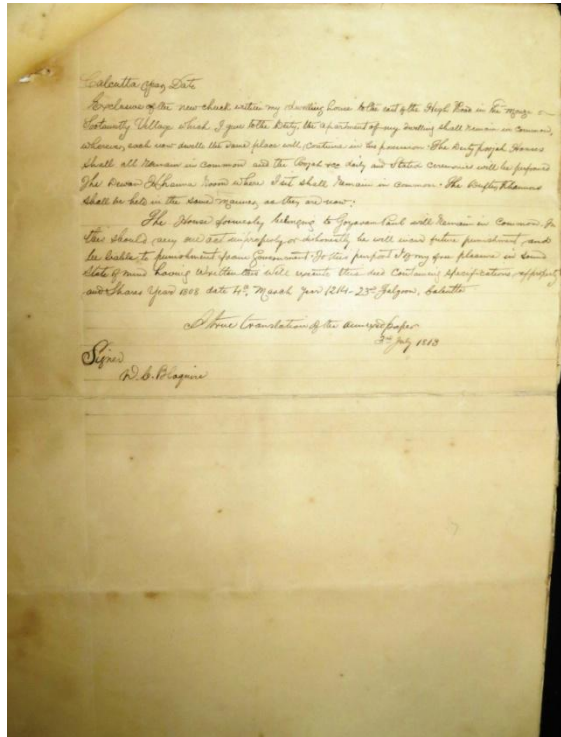 Calcutta
Exclusive of the new chuck within my dwelling house to the east of the High Road in the
Village which I give to the Deity, the apartment of my dwelling shall remain in common,
wherein each now dwells the same place will continue in his possession. The Duty poojah Houses
shall all remain in common and the Poojah daily and Stated ceremonies will be performed
The Dewan Khanna Room where I sit shall remain in common. The Dufter Khannas
shall be held in the same manner as they are now.
The House formerly belonging to will remain in common. In
should any one act improperly or dishonestly he will incur future punishment and
be liable to punishment from Government. To this purport I of my free pleasure in sound
State of mind having written this Will containing specifications of property
and Shares Year 1808 date 4th March Year 1214 - 23rd Falgoon, Calcutta
A true translation of the annexed paper
3rd July 1813
Signed
W. C. Blaquire